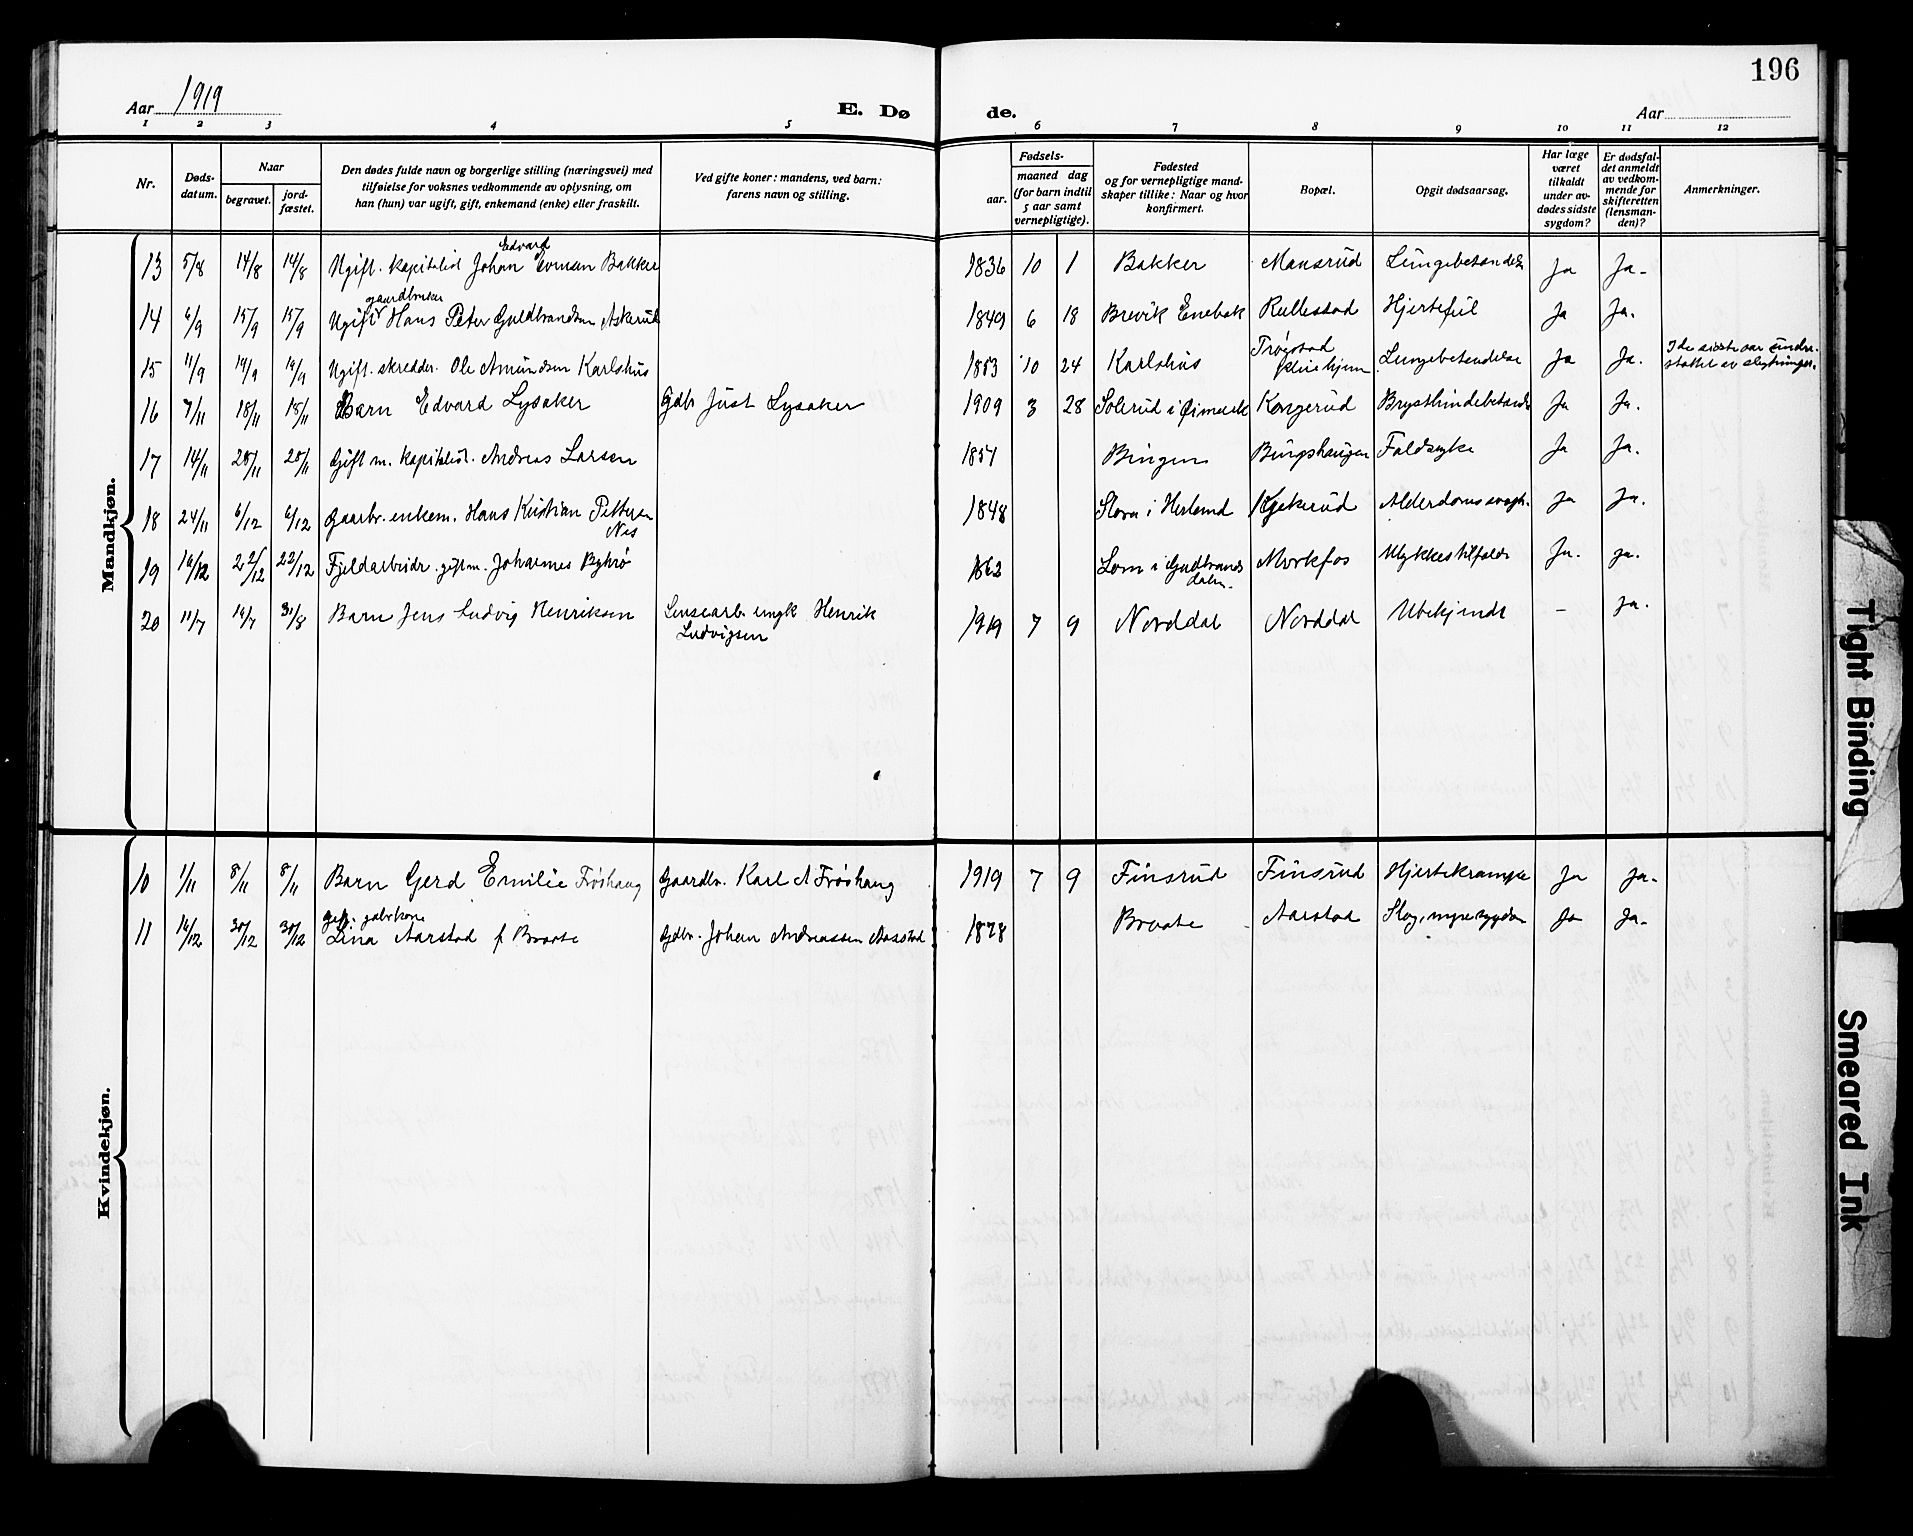 196
Aar 1919
E. Dø
de.
Aar
1 2 3 4 5 6 7 8 9 10 11 12
Nr.
Døds-
datum.
Naar
begravet.
jord-
fæstet.
Den dødes fulde navn og borgerlige stilling (næringsvei) med
tilføielse for voksnes vedkommende av oplysning, om
han (hun) var ugift, gift, enkemand (enke) eller fraskilt.
Ved gifte koner: mandens, ved barn:
farens navn og stilling.
Fødsels-
aar.
maaned dag
(for barn indtil
5 aar samt
vernepligtige).
Fødested
og for vernepligtige mand-
skaper tillike: Naar og hvor
konfirmert.
Bopæl.
Opgit dødsaarsag.
Har læge
været
tilkaldt
under av-
dødes sidste
sygdom?
Er dødsfal-
det anmeldt
av vedkom-
mende for
skifteretten
(lensman-
den)?
Anmerkninger.
Mandkjøn.
Edvard
13 5/8 14/8 14/8 Ugift. kapitalist Johan Evensen Bakker 1836 10 1 Bakker Mansrud Lungebetændelse Ja Ja.
gaardbruker
14 6/9 15/9 15/9 Ugift Hans Peter Guldbrandsen Askerud 1849 6 18 Brevik Enebak Rullestad Hjertefeil Ja Ja.
15 11/9 19/9 19/9 Ugift. skredder. Ole Amundsen Karlshus 1853 10 24 Karlshus Trøgstad pleiehjem Lungebetendelse Ja Ja. I de sidste aar understøttet av slegtninger.
16 7/11 18/11 18/11 Barn Edvard Lysaker Gdbr Just Lysaker 1909 3 28 Solerud i Øimark Kongerud Brysthindebetændelse Ja Ja.
17 14/11 28/11 28/11 Gift m. kapitalist. Andreas Larsen 1857 Bingen Bingshaugen Faldsyke Ja Ja.
18 24/11 6/12 6/12 Gaarbr. enkem. Hans Kristian Pettersen
Nes 1848 i Herland Kjekerud Alderdomssvagh. Ja Ja.
19 16/12 22/12 22/12 Fjeldarbeidr. gift m. Johannes Byhrø 1862 Lom i Gudbrands
dalen. Mørkfos Ulykkestilfælde Ja. ja.
20 11/7 19/7 31/8 Barn Jens Ludvig Henriksen Lensearb. ungk Henrik
Ludvigsen 1919 7 9 Norddal Norddal Ubekjendt – ja.
Kvindekjøn.
10 1/11 8/11 8/11 Barn Gerd Emilie Frøshaug Gaardbr. Karl A Frøshaug 1919 7 9 Finsrud Finsrud Hjertekrampe Ja Ja.
gift. gdbrkone
11 16/12 30/12 30/12 Lina Aarstad f Braate Gdbr. Johan Andreassen Aarstad 1878 Braate Aarstad Slag, nyresygdom Ja Ja.
Tight Binding
Smeared Ink